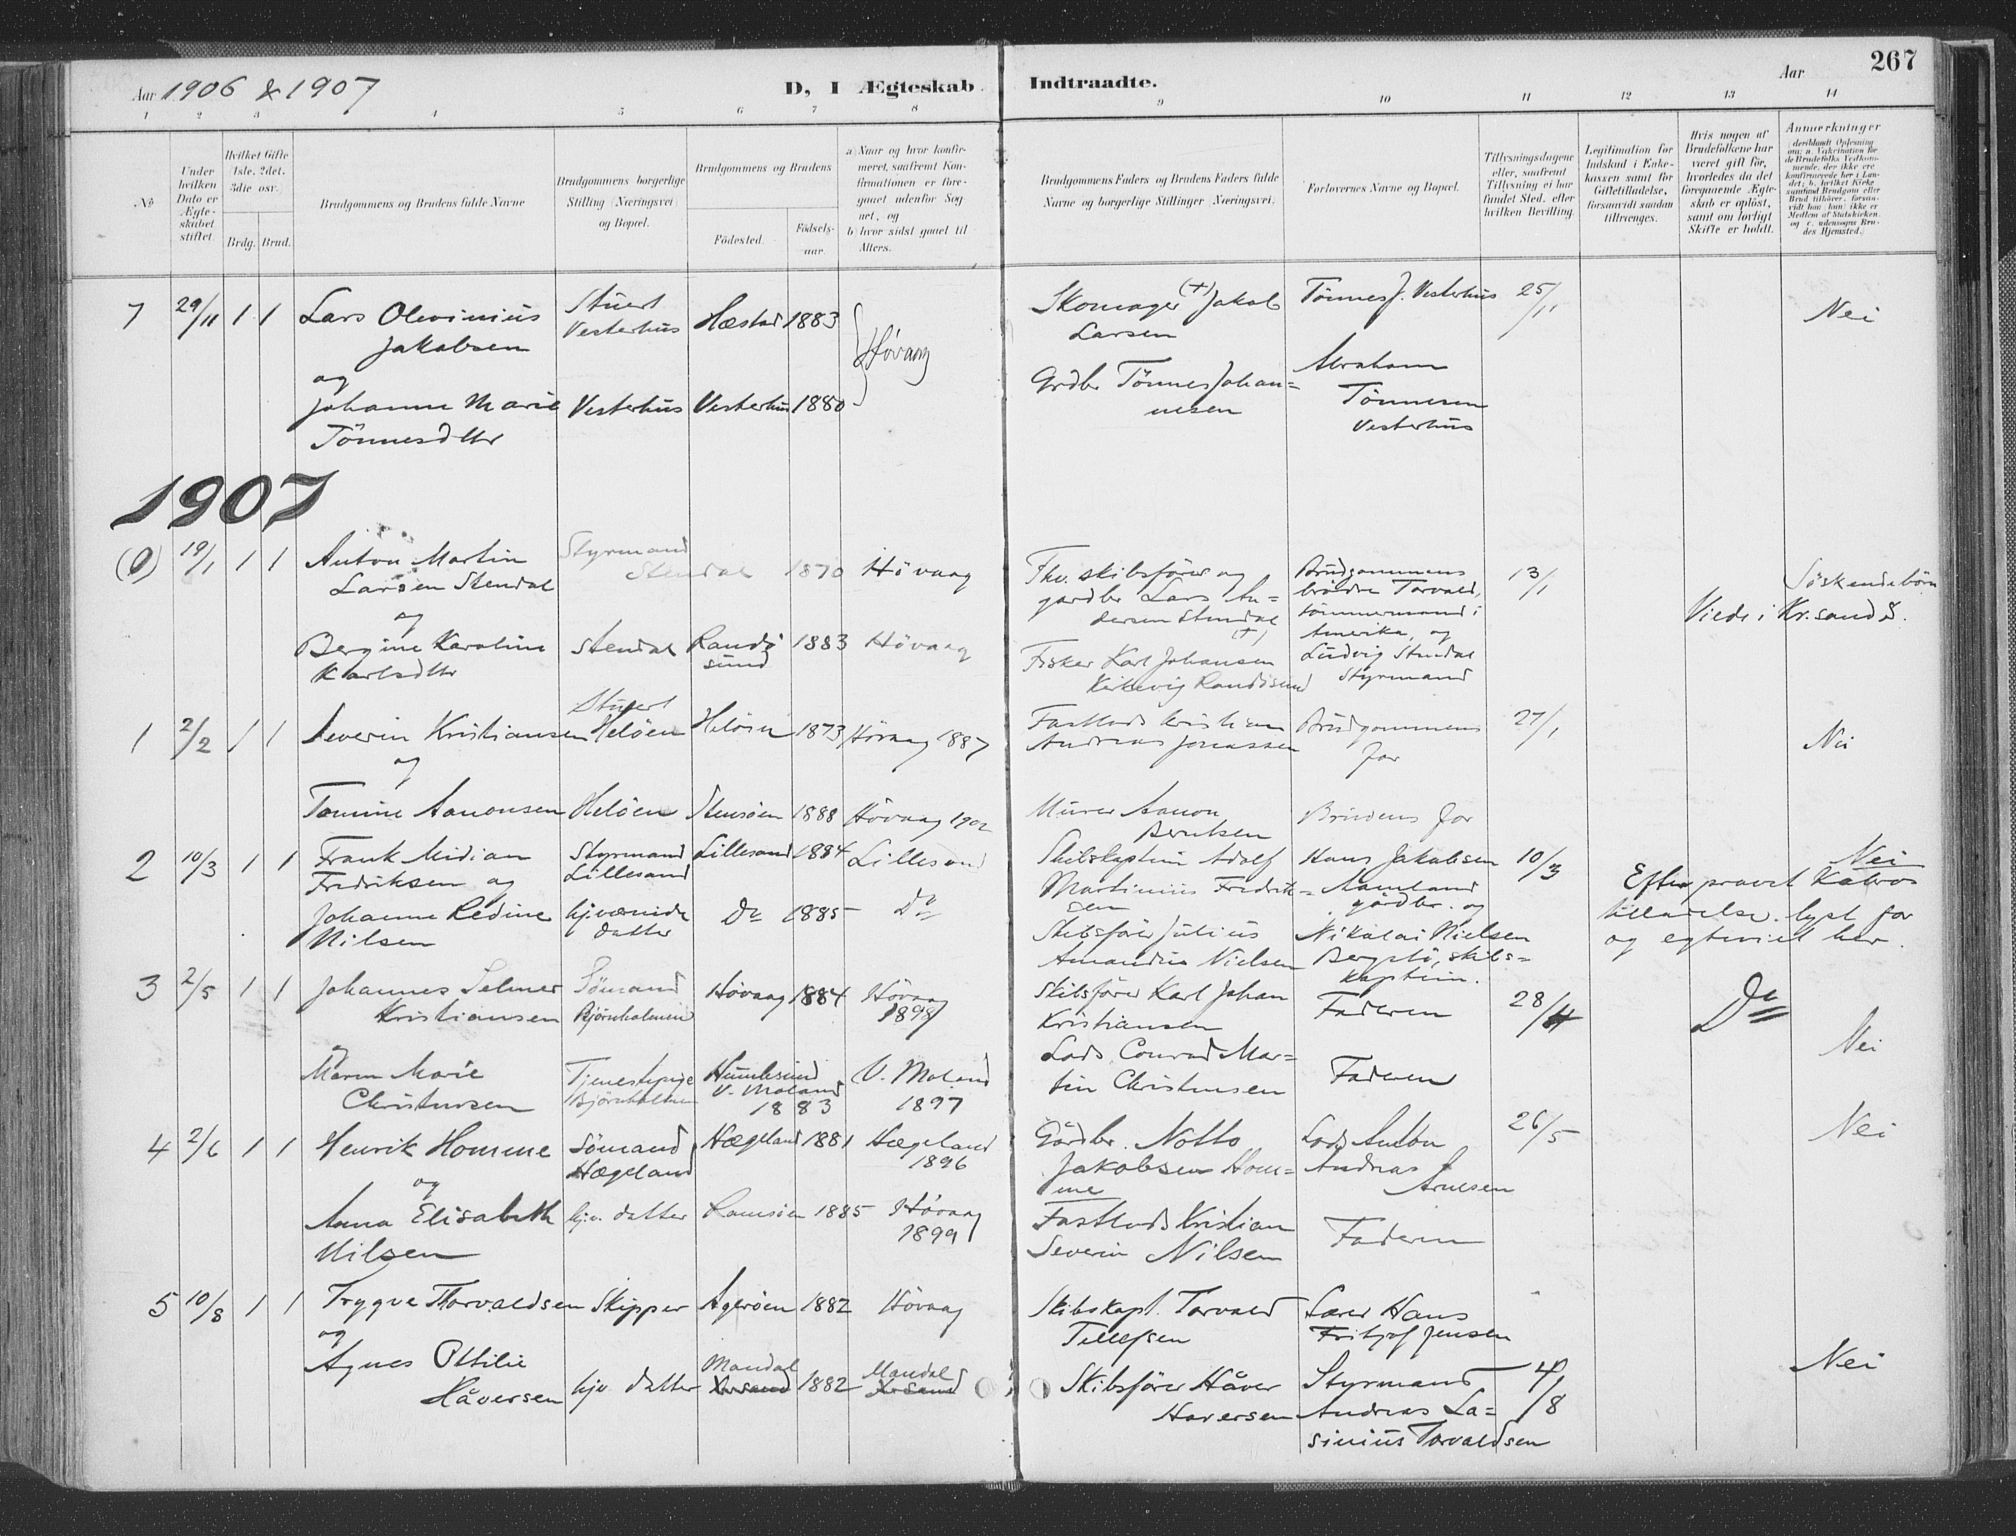 Aar 1906 & 1907 D, I Ægteskab Indtraadte. Aar 267
1 2 3 4 5 6 7 8 9 10 11 12 13 14
No
Under hvilken Dato er Ægteskabet stiftet.
Hvilket Gifte 1ste, 2det, 3die osv.
Brdg. Brud.
Brudgommens og Brudens fulde Navne
Brudgommens borgerlige Stilling (Næringsvei) og Bopæl.
Brudgommens og Brudens
Fødested. Fødselsaar.
a) Naar og hvor konfirmeret, saafremt Konfirmationen er foregaaet udenfor Sognet, og
b) hvor sidst gaaet til Alters.
Brudgommens Faders og Brudens Faders fulde Navne og borgerlige Stillinger (Næringsvei).
Forlovernes Navne og Bopæl.
Tillysningsdagene eller, saafremt Tillysning ei har fundet Sted, efter hvilken Bevilling.
Legitimation for Indskud i Enkekassen samt for Giftetilladelse, forsaavidt saadan tiltrænges.
Hvis nogen af Brudefolkene har været gift før, hvorledes da det foregaaende Ægteskab er opløst, samt om lovligt Skifte er holdt.
Anmerkninger
7 29/11 1 1 Lars Olevinius Jakobsen
Stuert Vesterhus Hæstad 1883
Høvaag
Skomager (+) Jakob Larsen
Tönnes J. Vesterhus 25/11
Nei
og
Johanne Marie Tönnesdtr
Vesterhus Vesterhus 1880
Grdbr Tönnes Johannesen
Abraham Tönnesen Vesterhus
1907
(0) 19/1 1 1 Anton Martin Larsen Stendal
Styrmand Stendal 1870 Høvaag
Fhv. skibsfører og gardbr Lars Andersen Stendal
Brudgommens brödre Torvald, tömmermand i Amerika, og Ludvig Stendal Styrmand
13/1
Söskendebörn
Viede i Kr.sand S.
og
Bergine Karoline Karlsdtr
Stendal Randösund 1883 Høvaag
(+) Fisker Karl Johansen Kirkevig Randösund
1 2/2 1 1 Severin Kristiansen
Stuert Helöen Helöen 1873 Høvaag 1887
Fastlods Kristian Andreas Jonassen
Brudgommens far 27/1
Nei
og
Tomine Aanonsen Helöen Stensöen 1888 Høvaag 1902
Murer Aanon Berntsen
Brudens far
2 10/3 1 1 Frank Midian Fredriksen og
Styrmand Lillesand Lillesand 1884 Lillesand
Skibskaptein Adolf Martinius Fredriksen
Hans Jakobsen gårdbr. og
10/3
Nei
Johanne Redine Nilsen
hjemværende datter Do 1885 Do
Skibsfører Julius Amandus Nielsen
Nikolai Nielsen Bergstö, skibskaptein.
tilladelse lyst for og egteviet her.
3 2/5 1 1 Johannes Selmer Kristiansen
Sömand Björnholmen Høvaag 1884 Høvaag 1898
Skibsfører Karl Johan Kristiansen
Faderen 28/4
Do
Nei
Maren Marie Christensen
Tjenestepige Björnholmen
Humlesund V. Moland 1883
V. Moland 1897
Lods Conrad Martin Christensen
Faderen
4 2/6 1 1 Henrik Homme
Sömand Hægeland Hægeland 1881 Hægeland 1896
Gårdbr. Notto Jakobsen Homme
Lods Anton Andreas Arnesen
26/5
Nei
og
Anna Elisabeth Nilsen
hjv. datter Ramsöen 1885 Høvaag 1899
Fastlods Kristian Severin Nilsen
Faderen
5 10/8 1 1 Trygve Thorvaldsen
Skipper Agerøen 1882 Høvaag
Skibskapt. Torvald Tellefsen
Lærer Hans Fritjof Jensen
og
Agnes Ottilie Håversen
hjv. datter Mandal Kr.sand 1882 Mandal Kr.sand
Skibsfører Håver Haversen
Styrmand Andreas Lasinius Torvaldsen
4/8
Nei